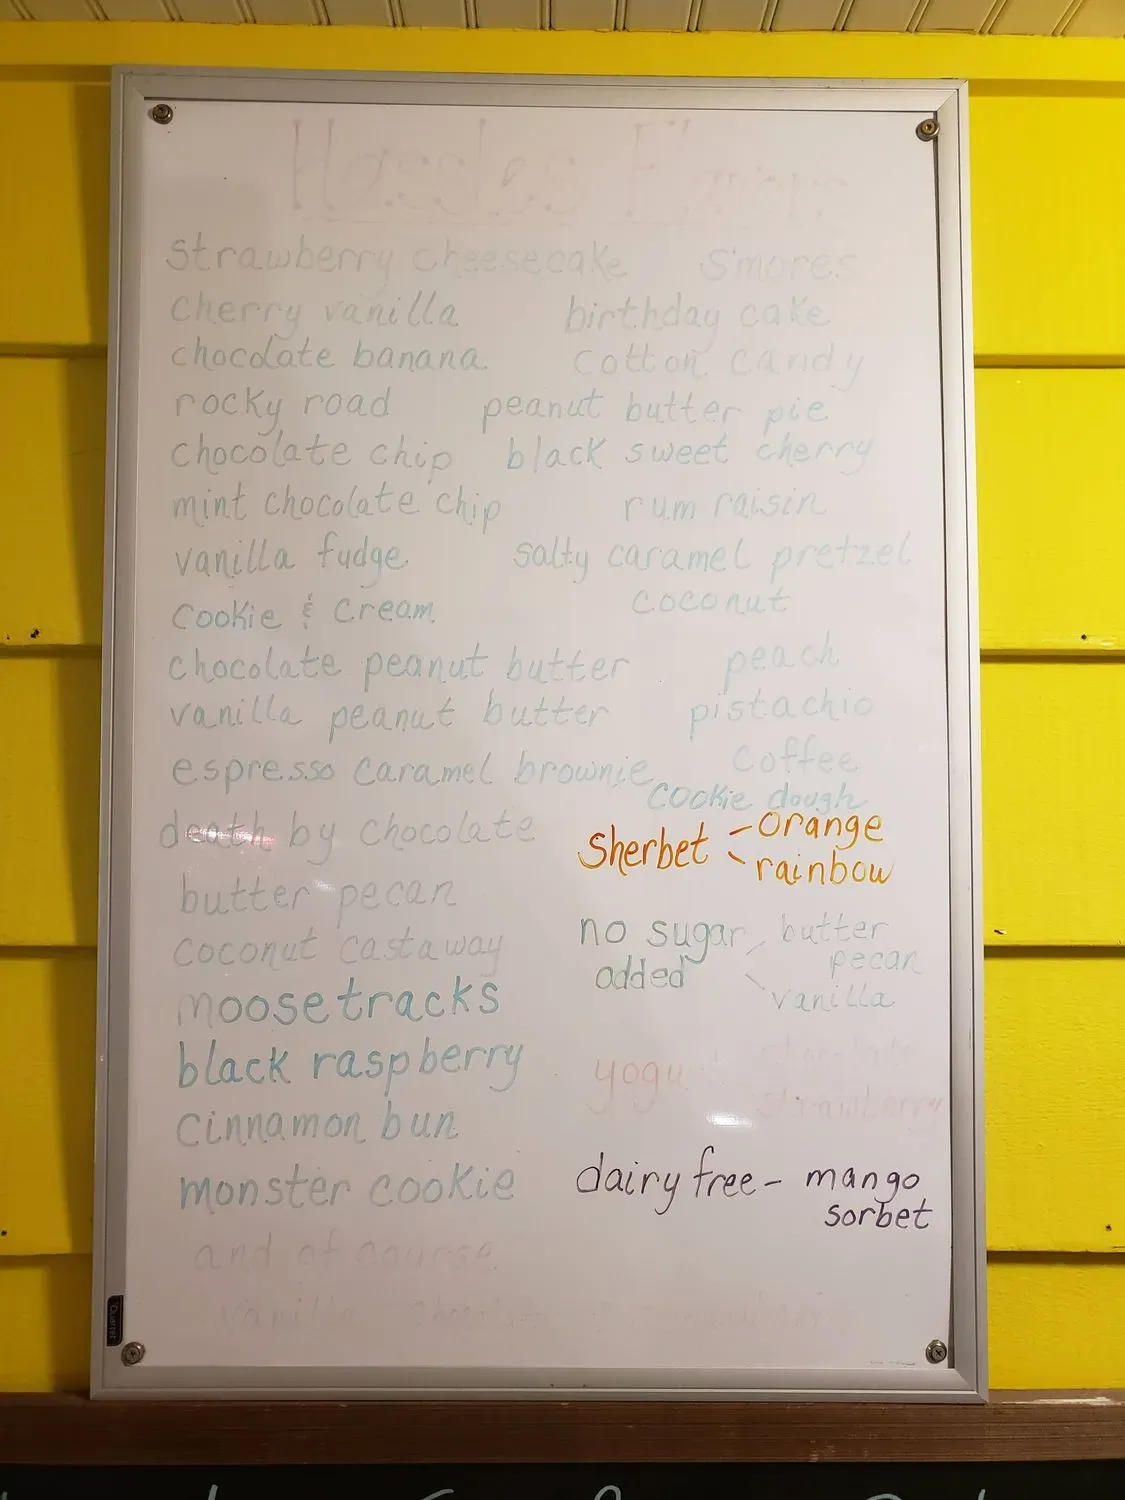 Flavors
strawberry cheesecake s'mores
cherry vanilla birthday cake
chocolate banana cotton candy
rocky road peanut butter pie
chocolate chip black sweet cherry
mint chocolate chip rum raisin
vanilla fudge salty caramel pretzel
cookie & cream coconut
chocolate peanut butter peach
vanilla peanut butter pistachio
espresso caramel brownie coffee
cookie dough
death by chocolate
Sherbet - orange
- rainbow
butter pecan
coconut castaway
no sugar added - butter pecan
- vanilla
moosetracks
black raspberry
strawberry
cinnamon bun
monster cookie
dairy free - mango
sorbet
and of course
vanilla chocolate
Quartet